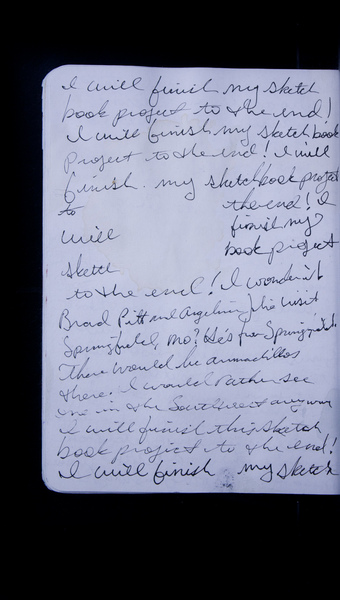 I will finish my sketch
book project to the end!
I will finish my sketch book
project to the end! I will
finish my sketchbook project
to the end! I
will finish my
sketch book project
to the end! I wonder
Brad Pitt and visit
Springfield, Mo? He's from Springfield.
There would be
there. I would rather see
one in the Southwest anyway
I will finish this sketch
book project to the end!
I will finish my sketch